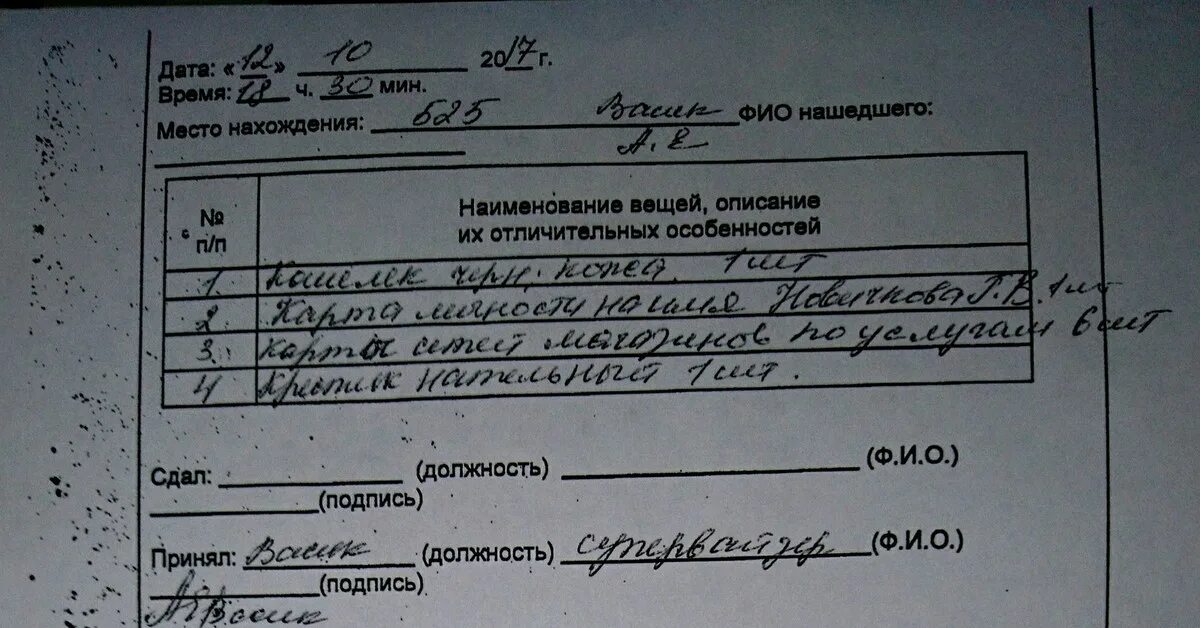 Дата: «12» 10 2017 г.
Время: 18 ч. 30 мин.
Место нахождения: 525 Васик ФИО нашедшего:
А. Е
№ п/п
Наименование вещей, описание
их отличительных особенностей
1 Кошелек черн. кожа. 1 шт
2 Карта личности на имя Новичкова Г. В. 1 шт
3 Карты сетей магазинов по услугам 6 шт
4 Крестик нательный 1 шт.
Сдал: (должность) (Ф.И.О.)
(подпись)
Принял: Васик (должность) супервайзер (Ф.И.О.)
(подпись)
АЕВасик